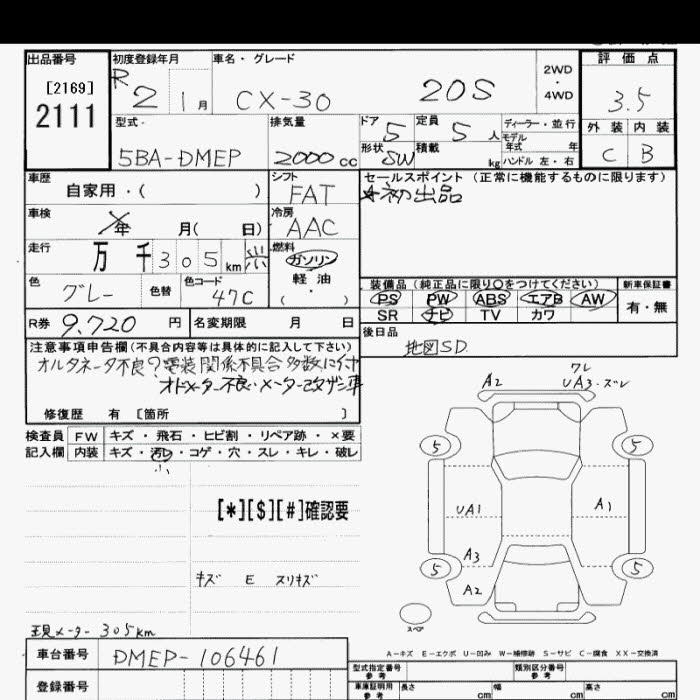 出品番号 初度登録年月 車名・グレード 2WD 評価点
[2169] R 2 1月 CX-30 20S ・ 3.5
2111 4WD
型式・ 排気量 ドア 5 定員 5人 ディーラー・並行 外装 内装
モデル年式 年
5BA-DMEP 2000cc 形状 SW 積載 kg ハンドル 左・右 C B
車歴 シフト セールスポイント (正常に機能するものに限ります)
自家用・( ) FAT 初出品
車検 年 月( 日) 冷房 AAC
走行 万 千 305 km 燃料 ガソリン
軽油
・
( )
色 グレー 色替 色コード 47C
装備品(純正品に限り○をつけてください) 新車保証書
PS PW ABS エアB AW 有・無
SR ナビ TV カワ
R券 9,720 円 名変期限 月 日 後日品
地図SD
注意事項申告欄(不具合内容等は具体的に記入して下さい)
オルタネータ不良?電装関係不具合多数に付
オドメーター不良・メーター改ザン車
修復歴 有 [箇所 ]
検査員 FW キズ・飛石・ヒビ割・リペア跡・×要
記入欄 内装 キズ・汚レ・コゲ・穴・スレ・キレ・破レ
小
[*][$][#]確認要
キズ E スリキズ
現メーター 305km
ワレ
A2 UA3・ズレ
5 5
UA1 A1
A3
5 5
A2
スペア
A-キズ E-エクボ U-凹み W-補修跡 S-サビ C-腐食 XX-交換済
車台番号 DMEP-106461
型式指定番号 参考 類別区分番号 参考
登録番号 車庫証明用 参考 長さ cm 幅 cm 高さ cm